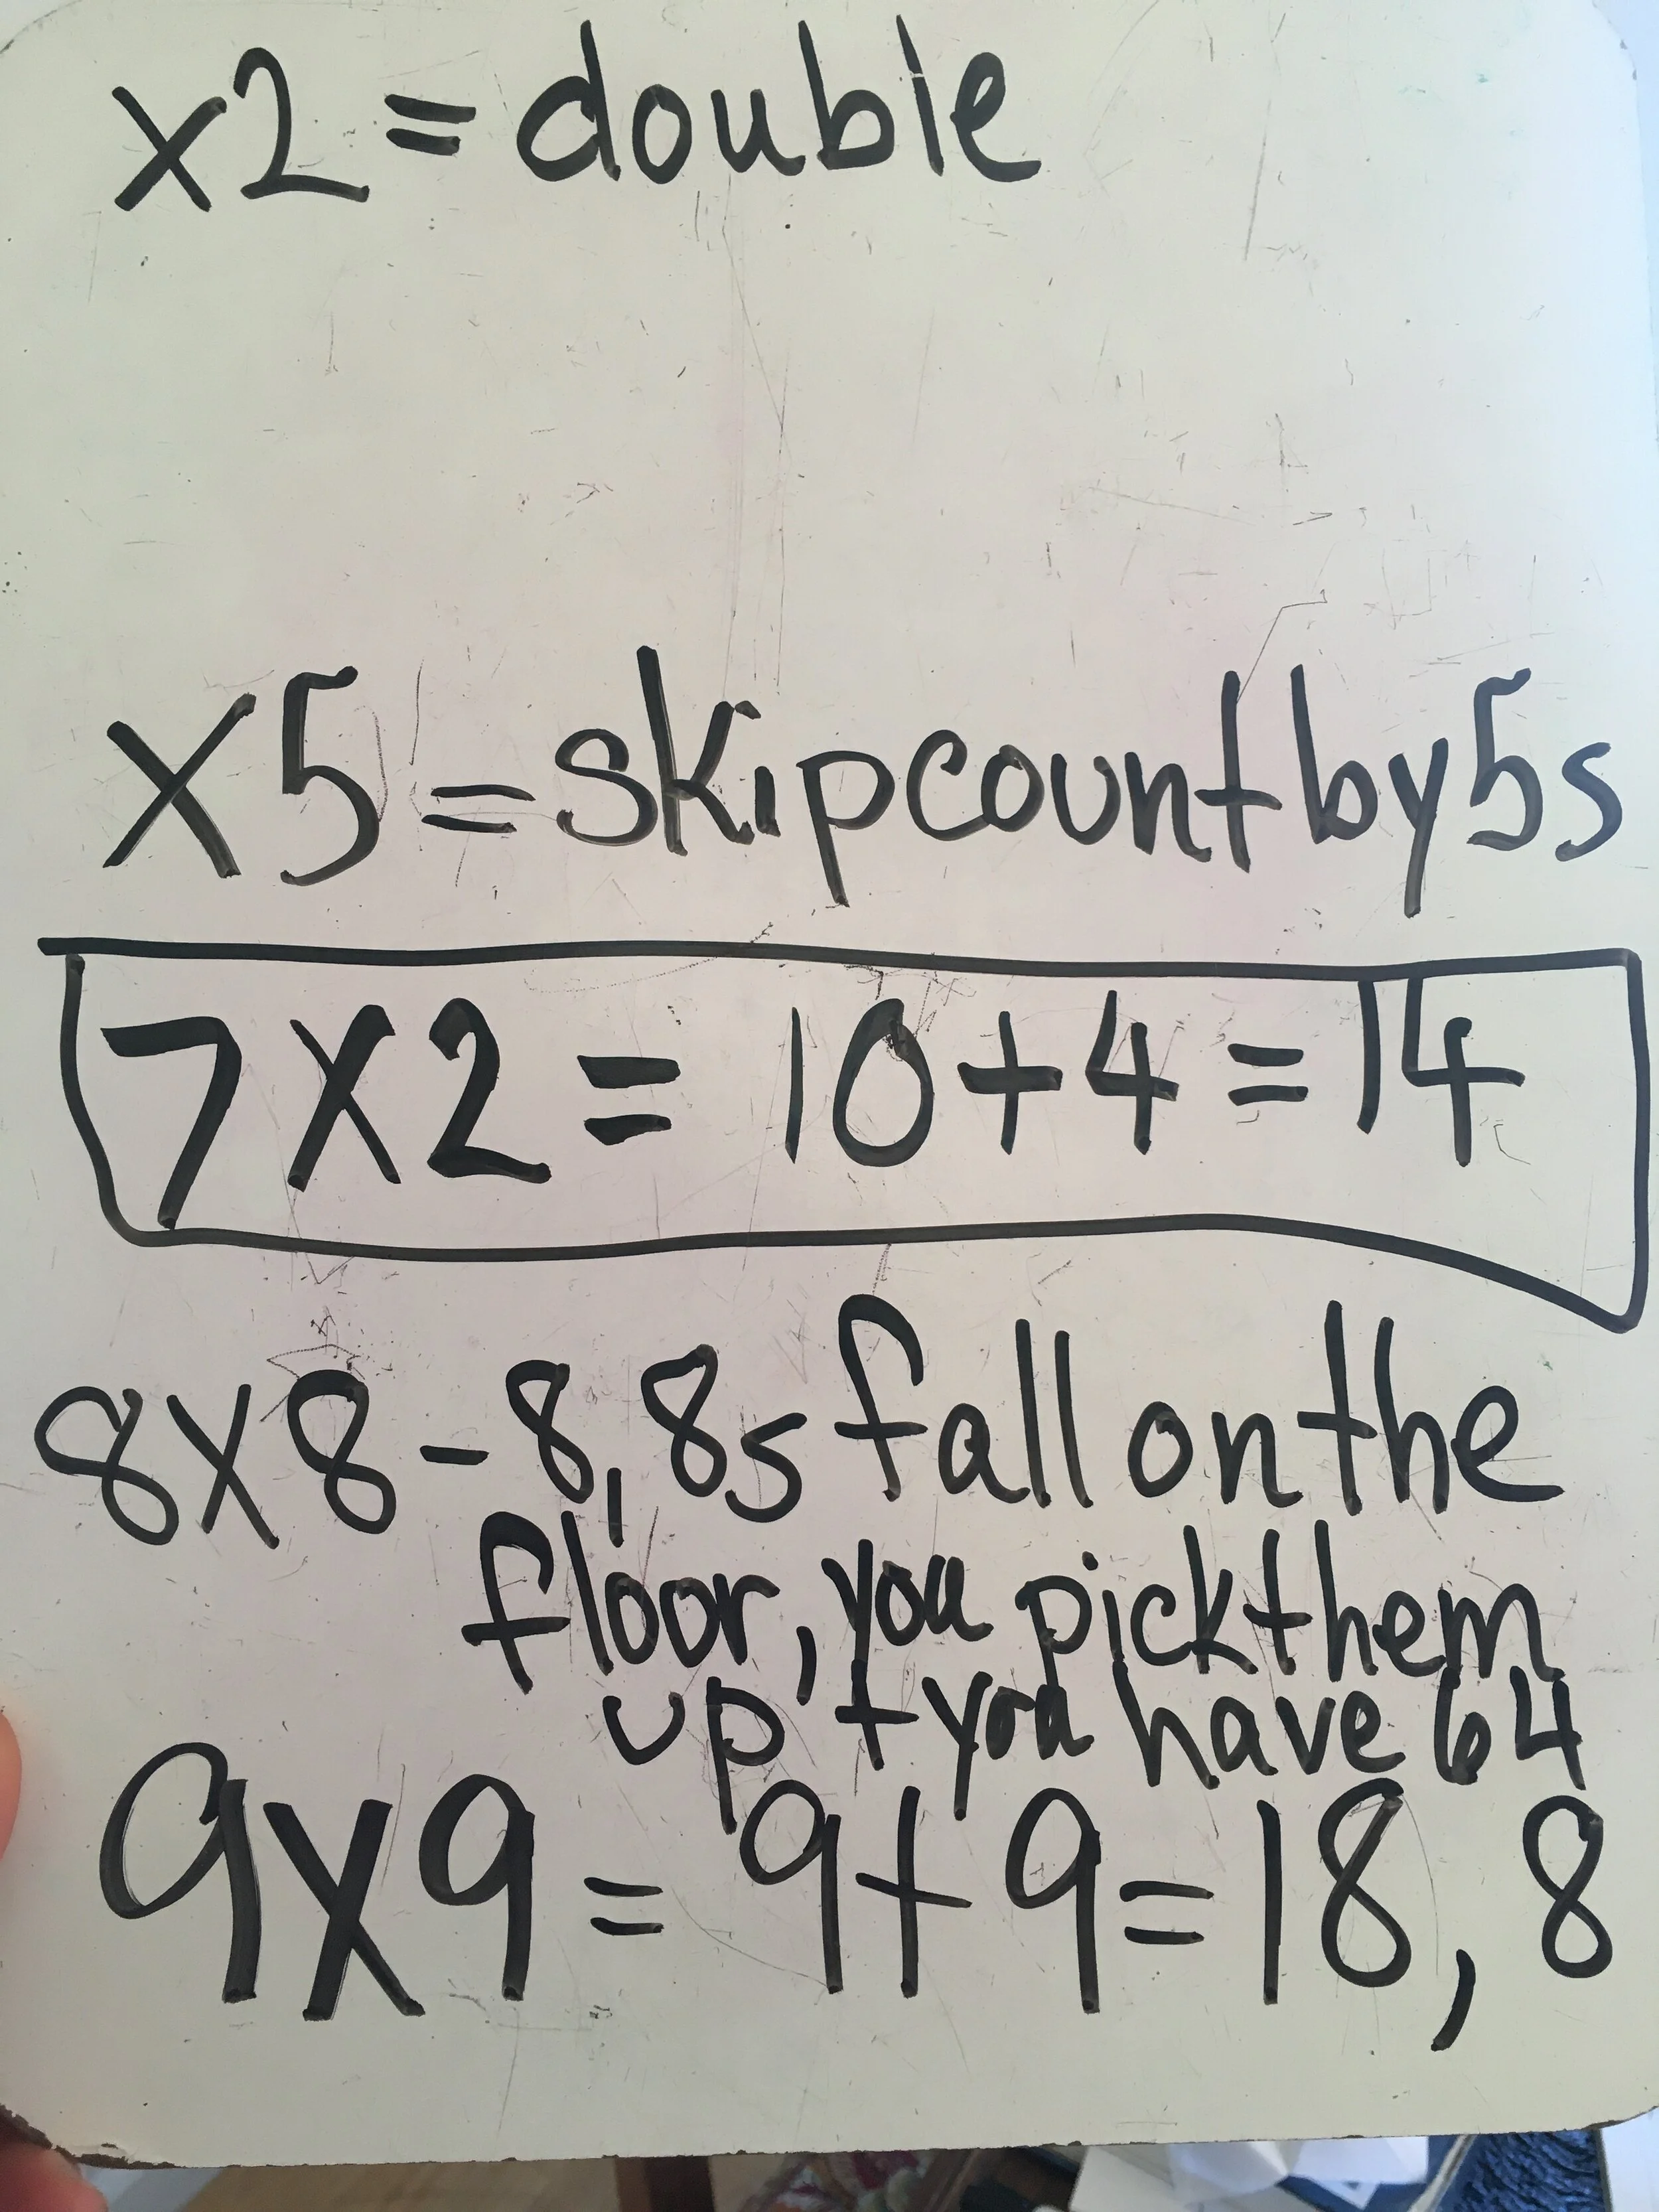 x2 = double
x5 = skip count by 5s
7x2 = 10+4 = 14
8x8 - 8, 8s fall on the
floor, you pick them
up, + you have 64
9x9 = 9+9 = 18, 8